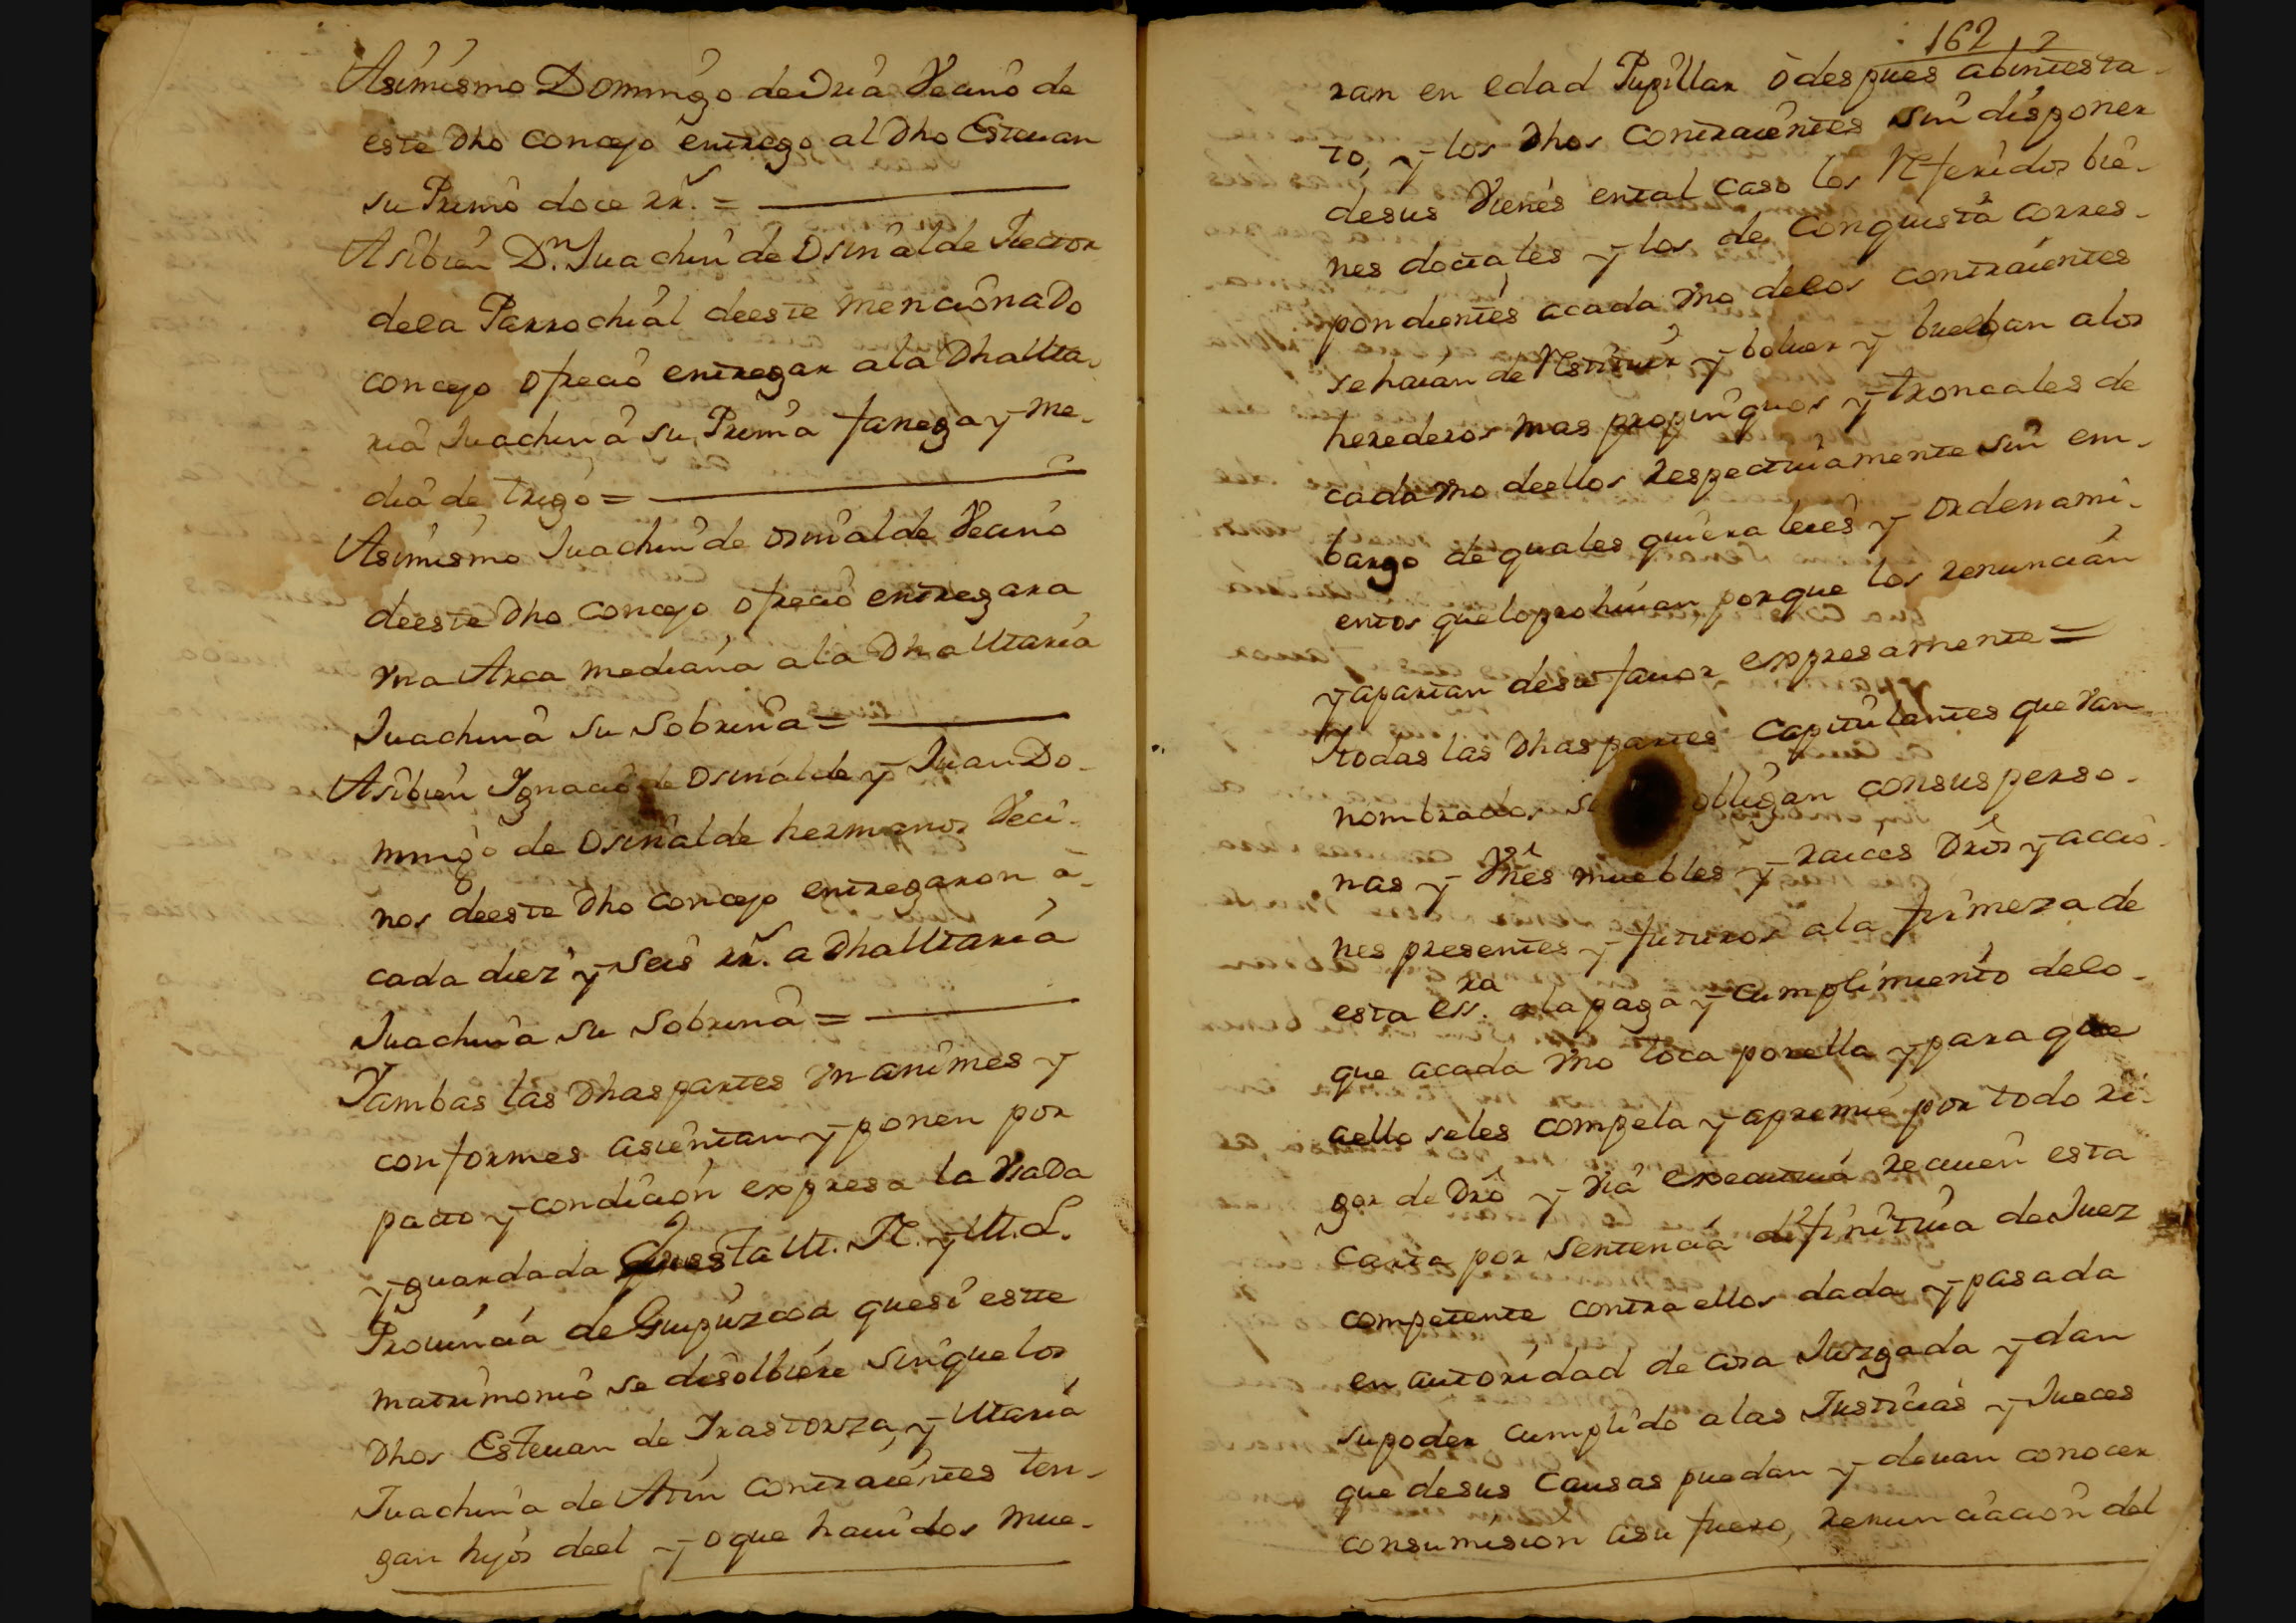 Asimismo Domingo de Vria Vecino de
este dho concejo entrego al dho Esteuan
su Primo doce rr.ˢ =
Asibien D.ⁿ Juachin de Osinalde Rector
dela Parrochial deeste mencionado
concejo ofrecio entregar ala dha Ma-
ria Juachina su Prima fanega y me-
dia de trigo =
Asimismo Juachin de osinalde Vecino
deeste dho concejo ofrecio entregara
vna Arca mediana ala dha Maria
Juachina su sobrina =
Asibien Ygnacio de osinalde y Juan Do-
mingo de osinalde hermanos Veci-
nos deeste dho concejo entregaron à
cada diez y seis rr.ˢ a dha Maria
Juachina su sobrina =
Yambas las dhas partes vnanimes y
conformes asientan y ponen por
pacto y condicion expresa la vsada
y guardada questa M. N. y M. L.
Prouincia de Guipuzcoa quesi estte
matrimonio se disolbiere sinque los
dhos Esteuan de Yrastorza, y Maria
Juachina de Arin contraientes ten-
gan hijos deel y oque hauidos mue-
162
ran en edad Pupillar ò despues abintesta-
to, y los dhos contraientes sin disponer
desus Vienes ental caso los Referidos bie-
nes dotales y los de conquista corres-
pondientes acada vno delos contraientes
sehaian de Restituir y boluer y buelban alos
herederos mas propinquos y troncales de
cada vno deellos respectiuamente sin em-
bargo de quales quiera leies y ordenami-
entos queloprohiuan porque los renuncian
y apartan desu fauor expresamente =
Ytodas las dhas partes capitulantes que van
nombrados se obligan consus perso-
nas y Vnês muebles y raices drôs y accio-
nes presentes y futuros ala firmeza de
esta ess.ra ala paga y cumplimiento delo
que acada vno toca porella y para que
aello seles compela y apremie por todo ri-
gor de drô y via executiua reciuen esta
carta por sentencia difinitiua de Juez
competente contra ellos dada y pasada
en autoridad de cosa Juzgada y dan
supoder cumplido alas Justicias y Jueces
que desus causas puedan y deuan conocer
consumision asu fuero, renunciacion del